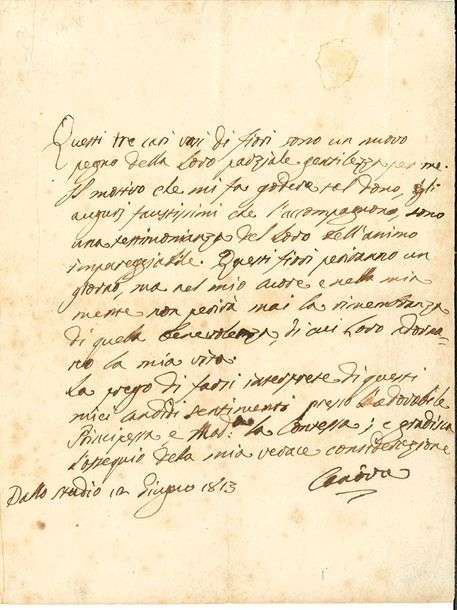 Questi tre cari vasi di fiori sono un nuovo
pegno della Loro parziale gentilezza per me.
Il motivo che mi fa godere tal dono, e gli
augurj faustissimi che l'accompagnano, sono
una testimonianza del Loro bell'animo
impareggiabile. Questi fiori periranno un
giorno, ma nel mio cuore e nella mia
mente non perirà mai la rimembranza
di quella benevolenza, di cui Loro
no la mia vita.
La prego di farsi interprete di questi
miei candidi sentimenti presso l'adorabile
Principessa e Mad.a la Contessa; e gradisca
l'ossequio della mia verace considerazione
Canòva
Dallo studio 12 Giugno 1813